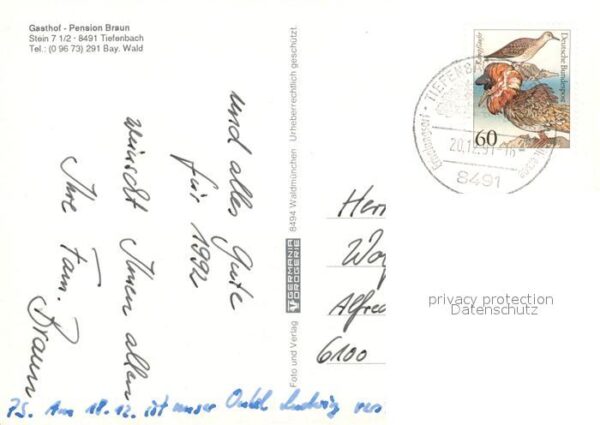 Gasthof - Pension Braun
Stein 7 1/2 · 8491 Tiefenbach
Tel.: (0 96 73) 291 Bay. Wald
und alles Gute
für 1992
wünscht Ihnen allen
Ihre Fam. Braun
PS. Am 18.12. ist unser Onkel Ludwig ver
Foto und Verlag GERMANIA DROGERIE 8494 Waldmünchen · Urheberrechtlich geschützt
Deutsche Bundespost
Kampfläufer
60
Erholungsort · TIEFENB
20.12.91-16
8491
Herr
Alfred
6100
privacy protection
Datenschutz